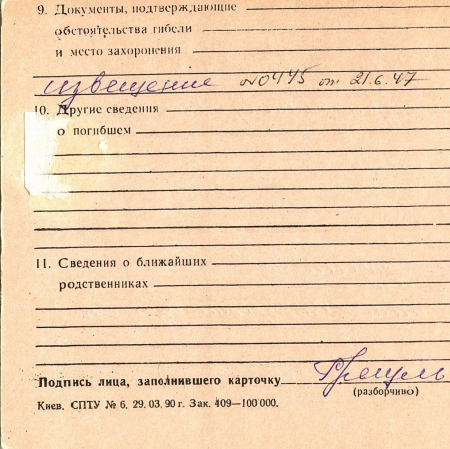 9. Документы, подтверждающие
обстоятельства гибели
и место захоронения
извещение №0445 от 21.6.47
10. Другие сведения
о погибшем
11. Сведения о ближайших
родственниках
Подпись лица, заполнившего карточку
(разборчиво)
Киев. СПТУ № 6. 29. 03. 90 г. Зак. 409—100 000.